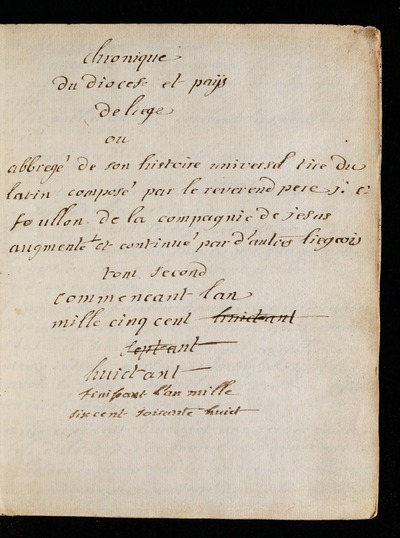 chronique
du diocese et païs
de liege
ou
abbregé de son histoire universel tiré du
latin composé par le reverend pere j: e:
foullon de la compagnie de jesus
augmenté et continué par d'autres liegeois
tom second
commencant lan
mille cinq cent huictant
septant
huictant
finissant l'an mille
six cent soisante huict